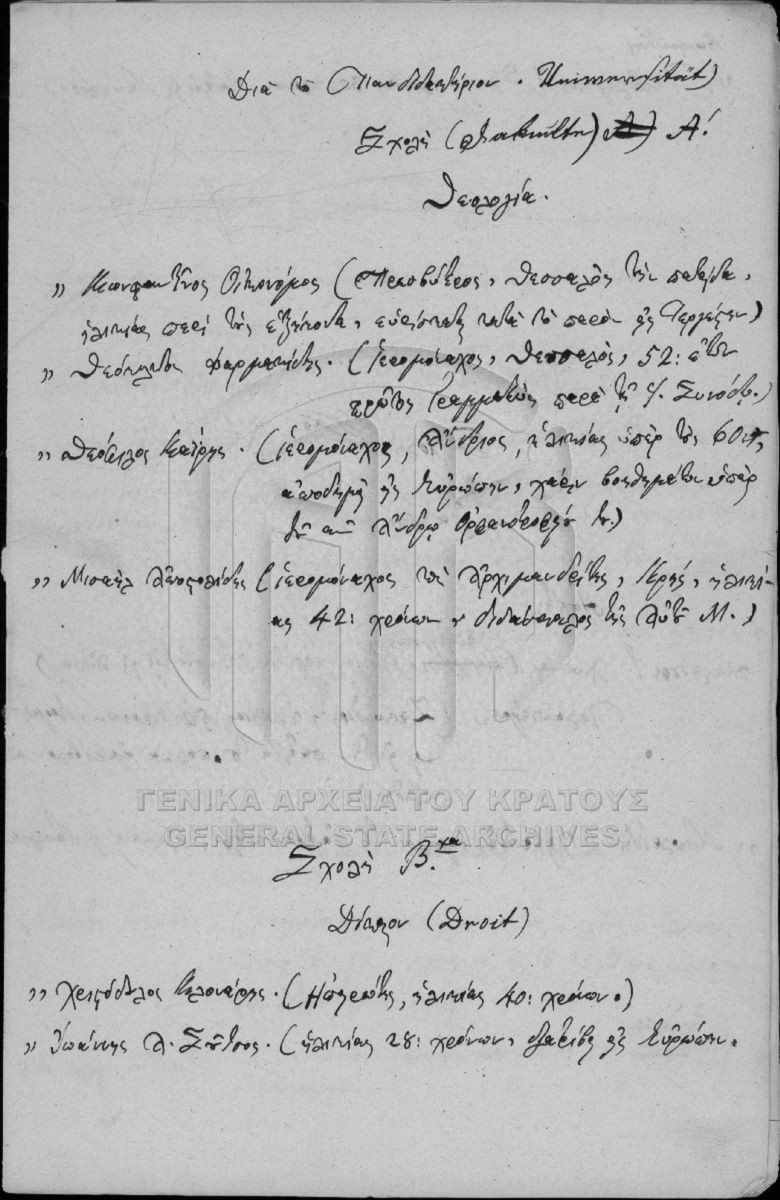 Διὰ τὸ Πανδιδακτήριον. Universität)
Σχολὴ (Fakulten) Α!
Θεολογία.
„ Κωνσταντῖνος Οἰκονόμος (Πρεσβύτερος, Θεσσαλὸς τὴν πατρίδα,
ἡλικίας περὶ τῆς ἑξήκοντα, εὑρίσκεται κατὰ τὸ παρὸν εἰς
„ Θεόκλητος Φαρμακίδης. (Ἱερομόναχος, Θεσσαλὸς, 52: ἐτῶν
πρῶτος Γραμματεὺς παρὰ τῇ Συνόδῳ.)
„ Θεόφιλος Καΐρης. (Ἱερομόναχος, Ἄνδριος, ἡλικίας ὑπὲρ τῆς 60:
ἀποδημεῖ εἰς Εὐρώπην, χάριν βοηθημάτων ὑπὲρ
τοῦ ἐν Ἄνδρῳ Ὀρφανοτροφείου του.)
„ Μισαὴλ Ἀποστολίδης (Ἱερομόναχος καὶ Ἀρχιμανδρίτης, Κρής, ἡλικί-
ας 42: χρόνων, διδάσκαλος τῆς Αὐτοῦ Μ.)
ΓΕΝΙΚΑ ΑΡΧΕΙΑ ΤΟΥ ΚΡΑΤΟΥΣ
GENERAL STATE ARCHIVES
Σχολὴ Β.τα
Δίκαιον (Droit)
„ Χριστόδουλος Κλονάρης. (Ἠπειρώτης, ἡλικίας 40: χρόνων.)
„ Ἰωάννης Α. Σοῦτσος. (ἡλικίας 28: χρόνων, διατρίβει εἰς Εὐρώπην.